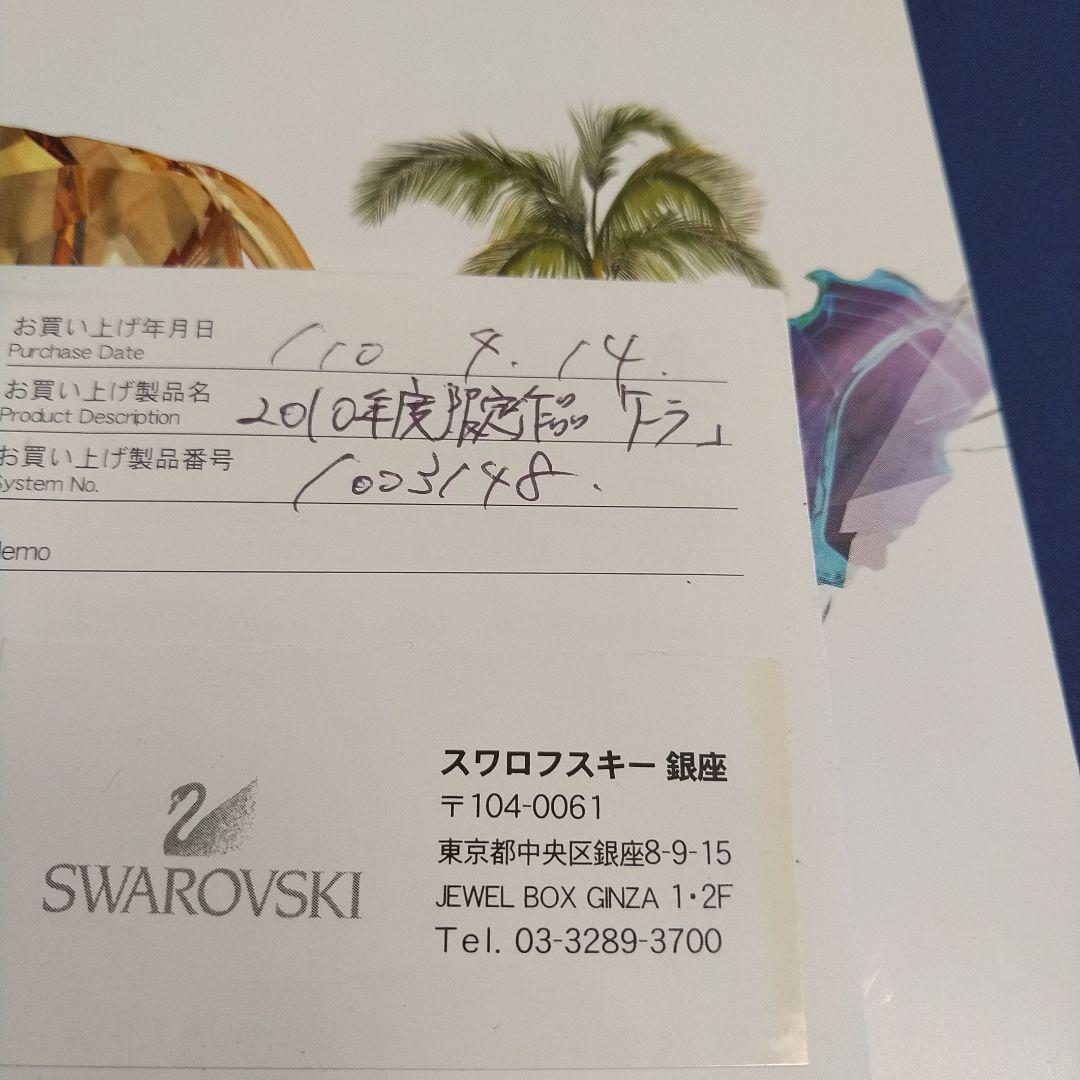 お買い上げ年月日
Purchase Date '10 4. 14.
お買い上げ製品名
Product Description 2010年度限定作品「トラ」
お買い上げ製品番号
System No. 1003148.
Memo
スワロフスキー 銀座
〒104-0061
東京都中央区銀座8-9-15
JEWEL BOX GINZA 1・2F
Tel. 03-3289-3700
SWAROVSKI